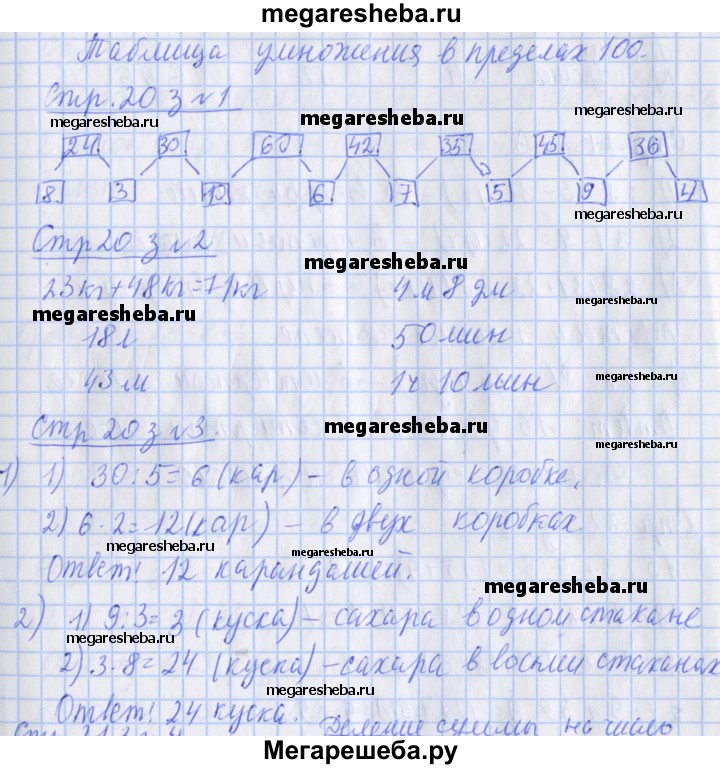 megaresheba.ru
Таблица умножения в пределах 100.
Стр. 20 з №1
megaresheba.ru megaresheba.ru megaresheba.ru
24 30 60 42 35 45 36
8 3 10 6 7 5 9 4
megaresheba.ru
Стр 20 з №2
megaresheba.ru
23кг+48кг=71кг 4м 8 дм
megaresheba.ru megaresheba.ru
18л 50мин
43м 1ч 10мин
megaresheba.ru
Стр 20 з №3.
megaresheba.ru
megaresheba.ru
1) 1) 30:5=6(кар)-в одной коробке,
2) 6·2=12(кар) - в двух коробках.
megaresheba.ru megaresheba.ru
Ответ: 12 карандашей.
megaresheba.ru
2) 1) 9:3=3(куска)-сахара в одном стакане
megaresheba.ru
2) 3·8=24 (куска)-сахара в восьми стаканах
megaresheba.ru
Ответ: 24 куска.
Деление суммы на число
Мегарешеба.ру